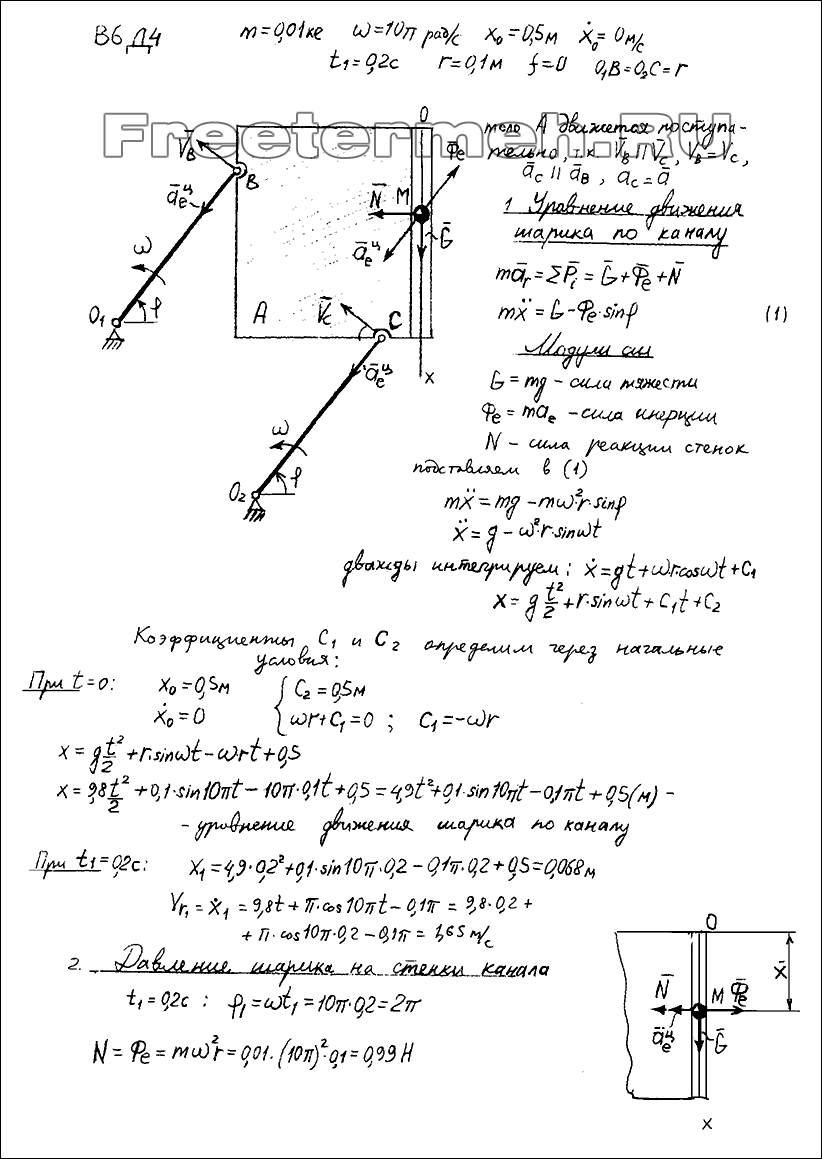 В6 Д4
m=0,01кг ω=10π рад/с x₀=0,5м ẋ₀=0м/с
t₁=0,2с r=0,1м f=0 O₁B=O₂C=r
Freetermeh.RU
тело А движется поступа-
тельно, т.к V̄_B ∥ V̄_C, V_B=V_C,
ā_C ∥ ā_B, a_C=ā
1 Уравнение движения
шарика по каналу
mā_r=ΣP̄_i=Ḡ+Φ̄_e+N̄
mẍ=G-Φ_e·sinφ (1)
Модули сил
G=mg - сила тяжести
Φ_e=ma_e - сила инерции
N - сила реакции стенок
подставляем в (1)
mẍ=mg-mω²·r·sinφ
ẍ=g-ω²·r·sinωt
дважды интегрируем: ẋ=gt+ωr·cosωt+C₁
x=g t²/2+r·sinωt+C₁t+C₂
O
V̄_B
B
ā_e^ц
N̄ M Φ̄_e
ā_e^ц Ḡ
ω
O₁ φ
A V̄_C C
ā_e^ц x
ω
O₂ φ
Коэффициенты C₁ и C₂ определим через начальные
условия:
При t=0: x₀=0,5м { C₂=0,5м
ẋ₀=0 ωr+C₁=0 ; C₁=-ωr
x=g t²/2+r·sinωt-ωrt+0,5
x=9,8 t²/2+0,1·sin10πt-10π·0,1t+0,5=4,9t²+0,1·sin10πt-0,1πt+0,5(м) -
- уровнение движения шарика по каналу
При t₁=0,2с: x₁=4,9·0,2²+0,1·sin10π·0,2-0,1π·0,2+0,5=0,068м
V_r₁=ẋ₁=9,8t+π·cos10πt-0,1π=9,8·0,2+
+π·cos10π·0,2-0,1π=1,65 м/с
2. Давление шарика на стенки канала
t₁=0,2с : φ₁=ωt₁=10π·0,2=2π
N=Φ_e=mω²r=0,01·(10π)²·0,1=0,99Н
O
x̄
N̄ M Φ̄_e
ā_e^ц Ḡ
x